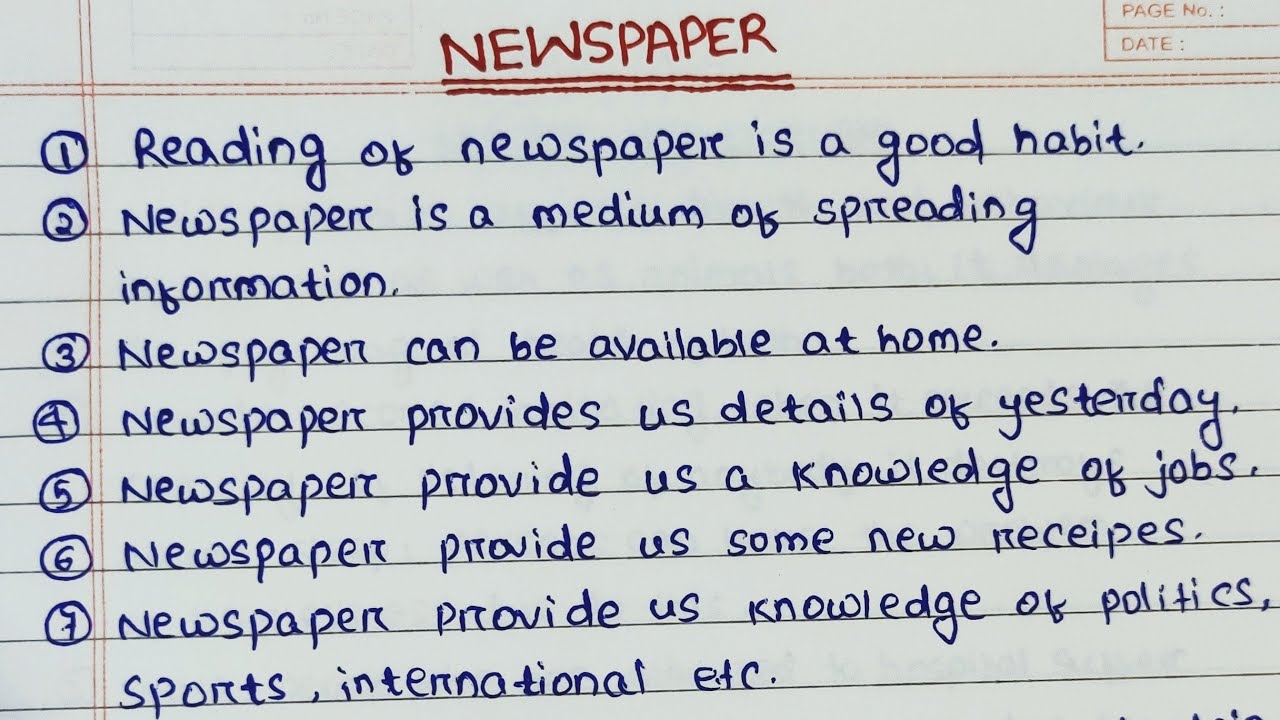 PAGE No. :
DATE :
NEWSPAPER
① Reading of newspaper is a good habit.
② Newspaper is a medium of spreading
information.
③ Newspaper can be available at home.
④ Newspaper provides us details of yesterday.
⑤ Newspaper provide us a knowledge of jobs.
⑥ Newspaper provide us some new receipes.
⑦ Newspaper provide us knowledge of politics,
sports, international etc.